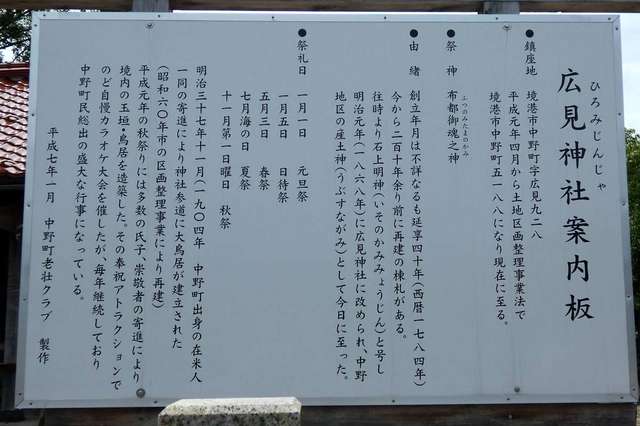 ひろみじんじゃ
広見神社案内板
●鎮座地　境港市中野町字広見九二八
平成元年四月から土地区画整理事業法で
境港市中野町五一八八になり現在に至る。
●祭　神　布都御魂之神
ふつのみたまのかみ
●由　緒　創立年月は不詳なるも延享四十年(西暦一七八四年)
今から二百十年余り前に再建の棟札がある。
往時より石上明神(いそのかみみょうじん)と号し
明治元年(一八六八年)に広見神社に改められ、中野
地区の産土神(うぶすながみ)として今日に至った。
●祭礼日　一月一日　元旦祭
一月五日　日待祭
五月三日　春祭
七月海の日　夏祭
十一月第一日曜日　秋祭
明治三十七年十一月(一九〇四年　中野町出身の在米人
一同の寄進により神社参道に大鳥居が建立された
(昭和六〇年市の区画整理事業により再建)
平成元年の秋祭りには多数の氏子、崇敬者の寄進により
境内の玉垣・鳥居を造築した。その奉祝アトラクションで
のど自慢カラオケ大会を催したが、毎年継続しており
中野町民総出の盛大な行事になっている。
平成七年一月　中野町老壮クラブ　製作